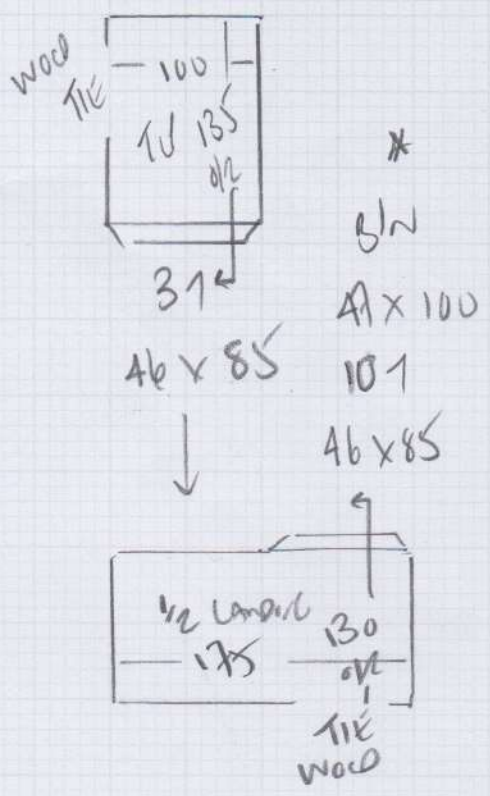 WOOD
TIE
100
135
O/R
31
46 X 85
*
B/N
47 X 100
101
46 X 85
1/2 LANDING
130
175
O/R
TIE
WOOD